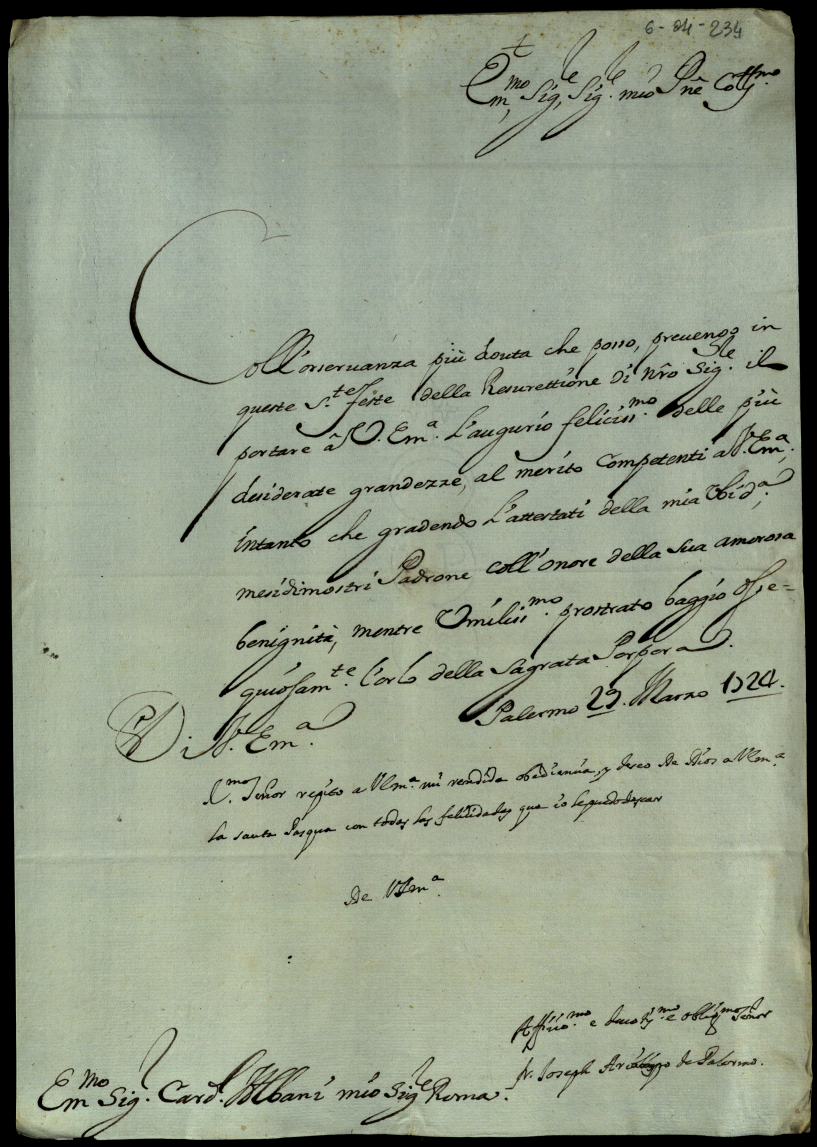 6-84-234
†
Em,mo Sig,re Sig.re mio Pne Coll.mo
Coll'osservanza più douta che posso, prevengo in
queste S.te feste della Resurettione di Nrô Sig.re il
portare â V. Em.a L'augurio feliciss.mo delle più
desiderate grandezze, al merito Competenti a V. Em.a;
intanto che gradendo L'attestati della mia Ubid.a;
mesidimostri Padrone coll'onore della sua amorosa
benignità, mentre Umiliss.mo prostrato baggio osse=
quiosam.te l'orlo della Sagrata Porpora.
Di V. Em.a
Palermo 29. Marzo 1724.
Señor repito a VEm.a mi rendida obediencia, y deseo de Dios a VEm.a
la santa Pasqua con todas las felicidades que io le puedo desear
De VEm.a
Affett.mo e devot.mo e oblig.mo Señor
fr. Joseph Arzobispo de Palermo.
Em.mo Sig.r Card. Albani mio Sig.re Roma.